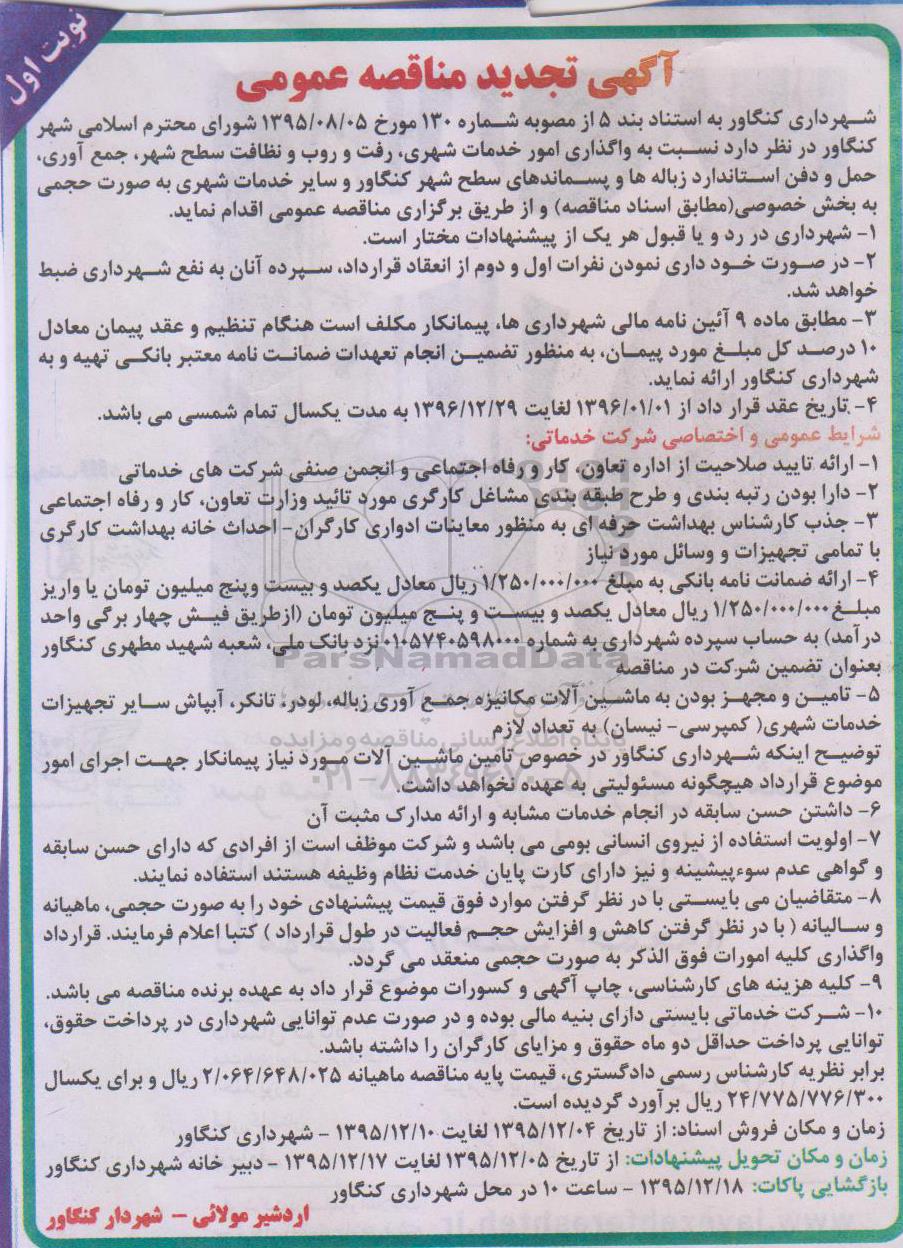 نوبت اول
آگهی تجدید مناقصه عمومی
شهرداری کنگاور به استناد بند ۵ از مصوبه شماره ۱۳۰ مورخ ۱۳۹۵/۰۸/۰۵ شورای محترم اسلامی شهر
کنگاور در نظر دارد نسبت به واگذاری امور خدمات شهری، رفت و روب و نظافت سطح شهر، جمع آوری،
حمل و دفن استاندارد زباله ها و پسماندهای سطح شهر کنگاور و سایر خدمات شهری به صورت حجمی
به بخش خصوصی(مطابق اسناد مناقصه) و از طریق برگزاری مناقصه عمومی اقدام نماید.
۱- شهرداری در رد و یا قبول هر یک از پیشنهادات مختار است.
۲- در صورت خود داری نمودن نفرات اول و دوم از انعقاد قرارداد، سپرده آنان به نفع شهرداری ضبط
خواهد شد.
۳- مطابق ماده ۹ آئین نامه مالی شهرداری ها، پیمانکار مکلف است هنگام تنظیم و عقد پیمان معادل
۱۰ درصد کل مبلغ مورد پیمان، به منظور تضمین انجام تعهدات ضمانت نامه معتبر بانکی تهیه و به
شهرداری کنگاور ارائه نماید.
۴- تاریخ عقد قرار داد از ۱۳۹۶/۰۱/۰۱ لغایت ۱۳۹۶/۱۲/۲۹ به مدت یکسال تمام شمسی می باشد.
شرایط عمومی و اختصاصی شرکت خدماتی:
۱- ارائه تایید صلاحیت از اداره تعاون، کار و رفاه اجتماعی و انجمن صنفی شرکت های خدماتی
۲- دارا بودن رتبه بندی و طرح طبقه بندی مشاغل کارگری مورد تائید وزارت تعاون، کار و رفاه اجتماعی
۳- جذب کارشناس بهداشت حرفه ای به منظور معاینات ادواری کارگران- احداث خانه بهداشت کارگری
با تمامی تجهیزات و وسائل مورد نیاز
۴- ارائه ضمانت نامه بانکی به مبلغ ۱/۲۵۰/۰۰۰/۰۰۰ ریال معادل یکصد و بیست وپنج میلیون تومان یا واریز
مبلغ ۱/۲۵۰/۰۰۰/۰۰۰ ریال معادل یکصد و بیست و پنج میلیون تومان (ازطریق فیش چهار برگی واحد
درآمد) به حساب سپرده شهرداری به شماره ۰۱۰۵۷۴۰۵۹۸۰۰۰ نزد بانک ملی، شعبه شهید مطهری کنگاور
بعنوان تضمین شرکت در مناقصه
ParsNamadData
۵- تامین و مجهز بودن به ماشین آلات مکانیزه جمع آوری زباله، لودر، تانکر، آبپاش سایر تجهیزات
خدمات شهری( کمپرسی- نیسان) به تعداد لازم
پایگاه اطلاع رسانی مناقصه و مزایده
توضیح اینکه شهرداری کنگاور در خصوص تامین ماشین آلات مورد نیاز پیمانکار جهت اجرای امور
موضوع قرارداد هیچگونه مسئولیتی به عهده نخواهد داشت.
۰۲۱-۸۸۳۴۹۶۷۰-۵
۶- داشتن حسن سابقه در انجام خدمات مشابه و ارائه مدارک مثبت آن
۷- اولویت استفاده از نیروی انسانی بومی می باشد و شرکت موظف است از افرادی که دارای حسن سابقه
و گواهی عدم سوءپیشینه و نیز دارای کارت پایان خدمت نظام وظیفه هستند استفاده نمایند.
۸- متقاضیان می بایستی با در نظر گرفتن موارد فوق قیمت پیشنهادی خود را به صورت حجمی، ماهیانه
و سالیانه ( با در نظر گرفتن کاهش و افزایش حجم فعالیت در طول قرارداد ) کتبا اعلام فرمایند. قرارداد
واگذاری کلیه امورات فوق الذکر به صورت حجمی منعقد می گردد.
۹- کلیه هزینه های کارشناسی، چاپ آگهی و کسورات موضوع قرار داد به عهده برنده مناقصه می باشد.
۱۰- شرکت خدماتی بایستی دارای بنیه مالی بوده و در صورت عدم توانایی شهرداری در پرداخت حقوق،
توانایی پرداخت حداقل دو ماه حقوق و مزایای کارگران را داشته باشد.
برابر نظریه کارشناس رسمی دادگستری، قیمت پایه مناقصه ماهیانه ۲/۰۶۴/۶۴۸/۰۲۵ ریال و برای یکسال
۲۴/۷۷۵/۷۷۶/۳۰۰ ریال برآورد گردیده است.
زمان و مکان فروش اسناد: از تاریخ ۱۳۹۵/۱۲/۰۴ لغایت ۱۳۹۵/۱۲/۱۰ - شهرداری کنگاور
زمان و مکان تحویل پیشنهادات: از تاریخ ۱۳۹۵/۱۲/۰۵ لغایت ۱۳۹۵/۱۲/۱۷ - دبیر خانه شهرداری کنگاور
بازگشایی پاکات: ۱۳۹۵/۱۲/۱۸ - ساعت ۱۰ در محل شهرداری کنگاور
اردشیر مولائی - شهردار کنگاور